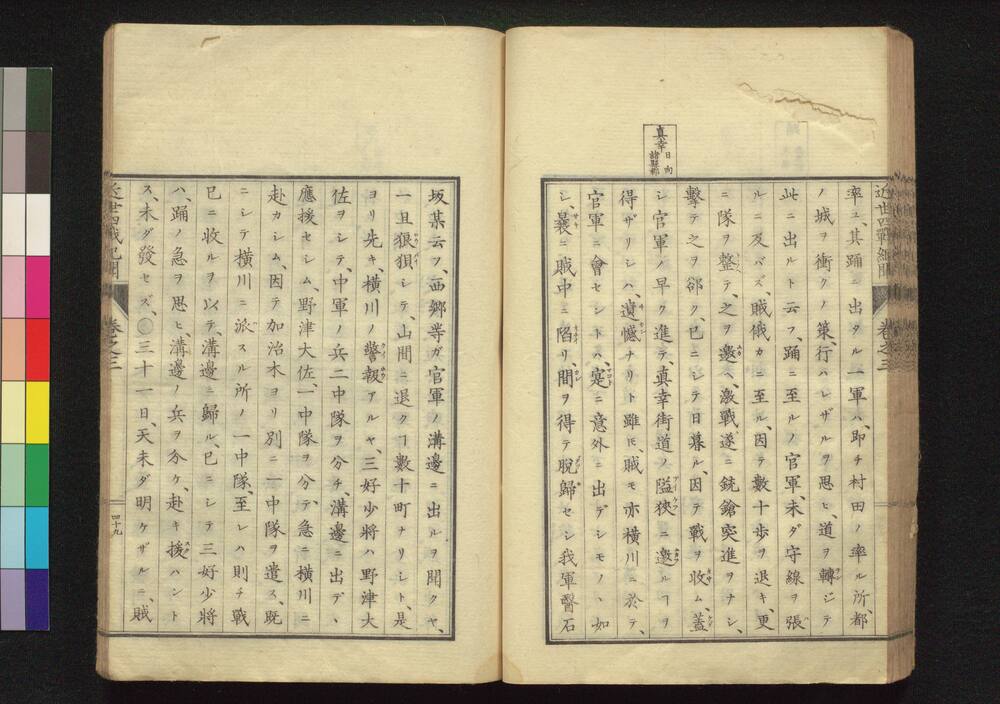 真幸 日向諸縣郡
率ユ、其踊ニ出タル一軍ハ、即チ村田ノ率ル所、都
ノ城ヲ衝クノ策、行ハレザルヲ思ヒ、道ヲ轉ジテ
此ニ出ルト云フ、踊ニ至ルノ官軍、未ダ守線ヲ張
ルニ及バズ、賊俄カニ至ル、因テ數十歩ヲ退キ、更
ニ隊ヲ整テ、之ヲ邀ヘ、激戰遂ニ銃鎗突進ヲナシ、
擊テ之ヲ郤ク、已ニシテ日暮ル、因テ戰ヲ收ム、蓋
シ官軍ノ早ク進テ、真幸街道ノ隘狹ニ邀ルヿヲ
得ザリシハ、遺憾ナリト雖𪜈、賊モ亦橫川ニ於テ、
官軍ニ會セントハ、寔ニ意外ニ出デシモノヽ如
シ、曩ニ賊中ニ陷リ、間ヲ得テ脫歸セシ我軍醫石
近世戰紀聞
卷之三
坂某云フ、西郷等ガ官軍ノ溝邊ニ出ルヲ聞クヤ、
一旦狼狽シテ、山間ニ退クヿ數十町ナリシト、是
ヨリ先キ、橫川ノ警報アルヤ、三好少將ハ野津大
佐ヲシテ、中軍ノ兵二中隊ヲ分チ、溝邊ニ出デ、
應援セシム、野津大佐、一中隊ヲ分テ、急ニ橫川ニ
赴カシム、因テ加治木ヨリ別ニ一中隊ヲ遣ス、既
ニシテ橫川ニ派スル所ノ一中隊、至レハ則チ戰
已ニ收ルヲ以テ、溝邊ニ歸ル、已ニシテ三好少將
ハ、踊ノ急ヲ思ヒ、溝邊ノ兵ヲ分ケ、赴キ援ハント
ス、未ダ發セズ、〇三十一日、天未ダ明ケザルニ、賊
卷之三
四十九